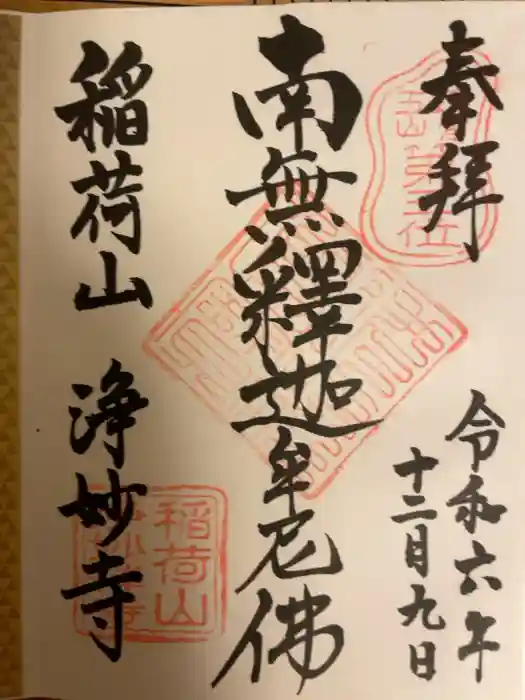 奉拝
令和六年
十二月九日
南無釋迦牟尼佛
稲荷山 浄妙寺
稲荷山